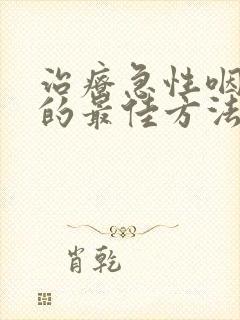 治疗急性咽
的最佳方法
肖乾